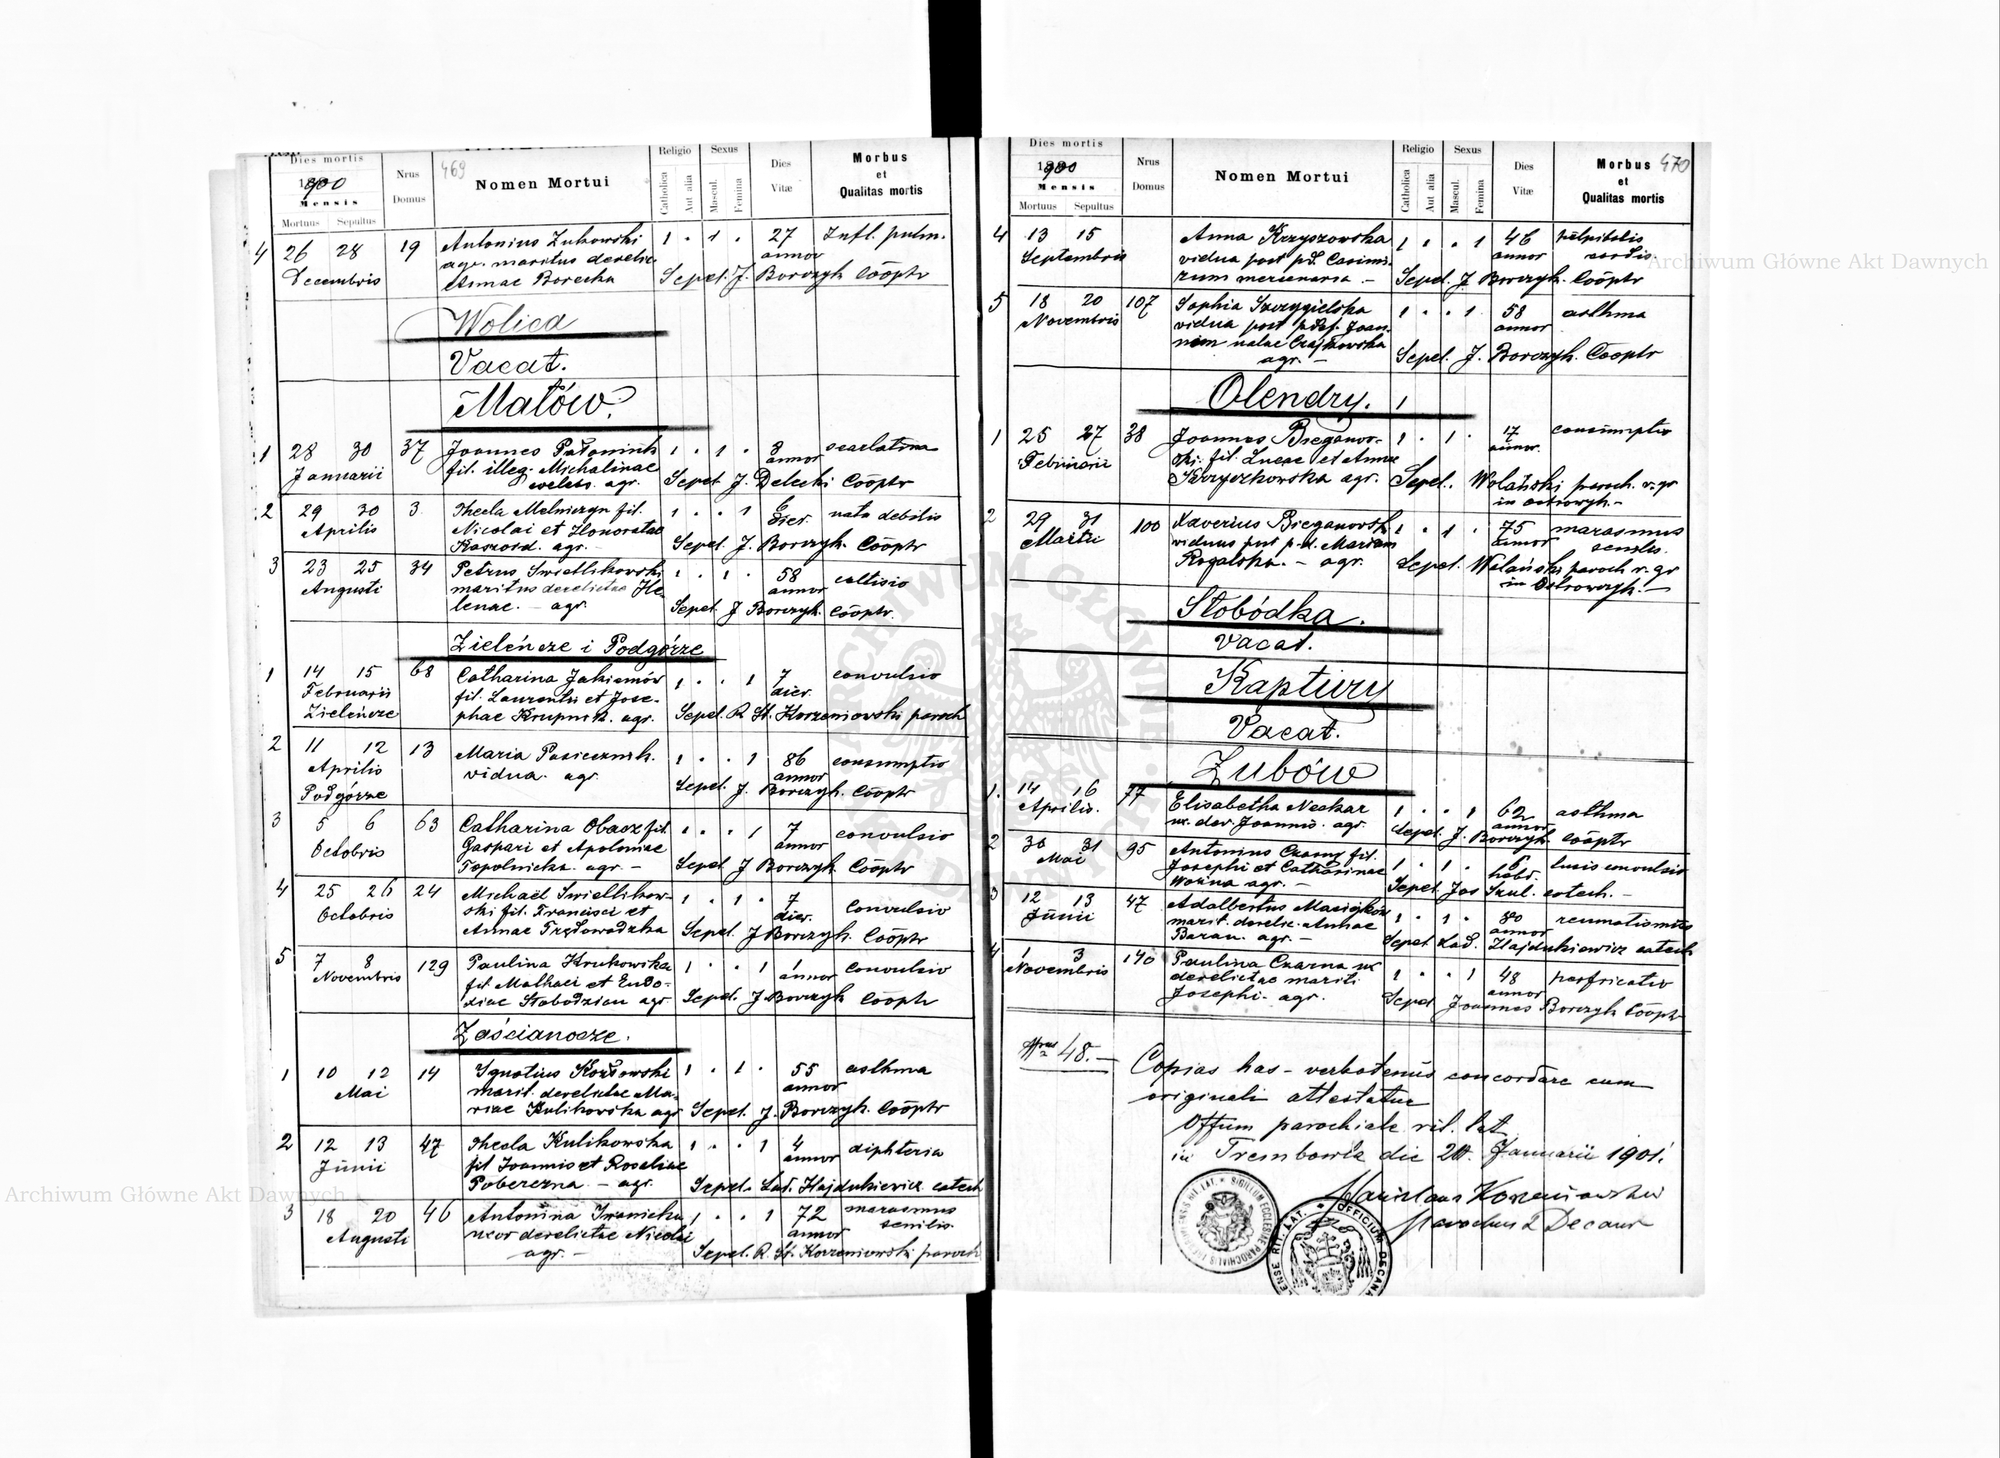 469
Dies mortis
1900
Mensis
Mortuus Sepultus
Nrus Domus
Nomen Mortui
Religio
Catholica
Aut alia
Sexus
Mascul.
Femina
Dies Vitæ
Morbus et Qualitas mortis
4 26 28 19 Antonius Żukowski 1 . 1 . 27 Infl. pulm.
agr. maritus derelic. annor
Decembris Annae Borecka Sepel. J. Borczyk Cōōptr
Wolica
Vacat.
Małów.
1 28 30 37 Joannes 1 . 1 . 8 scarlatina
Januarii fil. illeg. Michalinae annor
celebs. agr. Sepel. J. Delecki Cōōptr
2 29 30 3 Thecla Melniczyn fil. 1 . . 1 6 nata debilis
Aprilis Nicolai et Honoratae dier.
agr. Sepel. J. Borczyk. Cōōptr
3 23 25 34 Petrus Swietlikowski 1 . 1 . 58
Augusti maritus derelictae He- annor
lenae. — agr. Sepel. J Borczyk. Cōōptr.
Zieleńcze i Podgórze
1 14 15 68 Catharina Jakimów 1 . . 1 7 convulsio
Februarii fil. Laurentii et Jose- dier.
Zieleńcze phae Krupnik. agr. Sepel. R. St. Korzeniowski paroch
2 11 12 13 Maria Pasiecznik. 1 . . 1 86 consumptio
Aprilis vidua. agr. annor
Podgórze Sepel. J. Borczyk. Cōōptr
3 5 6 63 Catharina Obacz fil. 1 . . 1 7 convulsio
Octobris Gaspari et Apoloniae annor
Topolnicka. agr. — Sepel. J Borczyk. Cōōptr
4 25 26 24 Michaël Swietlikow- 1 . 1 . 7 convulsio
Octobris ski fil. Francisci et dier.
Annae Sepel. J Borczyk. Cōōptr
5 7 8 129 Paulina Krukowska 1 . . 1 1 convulsio
Novembris fil. Mathaei et Eudo- annor
xiae Słobodzian agr Sepel. J. Borczyk Cōōptr
Zaścianocze.
1 10 12 14 Ignatius Kozłowski 1 . 1 . 55 asthma
Mai marit. derelictae Ma- annor
riae Kulikowska agr Sepel. J. Borczyk. Cōōptr
2 12 13 47 Thecla Kulikowska 1 . . 1 4 diphteria
Junii fil Joannis et Rosaliae annor
Poberezna — agr. Sepel. Lad. Hajdukiewicz catech
3 18 20 46 Antonina Iwanicka 1 . . 1 72 marasmus senilis.
Augusti uxor derelictae Nicolai annor
agr. — Sepel. R. St. Korzeniowski paroch
470
Dies mortis
1900
Mensis
Mortuus Sepultus
Nrus Domus
Nomen Mortui
Religio
Catholica
Aut alia
Sexus
Mascul.
Femina
Dies Vitæ
Morbus et Qualitas mortis
4 13 15 Anna Krzyszowska 1 . . 1 46 palpitatio
Septembris vidua post p.d. Casimi- annor cordis.
rum mercenaria — Sepel. J Borczyk. Cōōptr
5 18 20 107 Sophia Szczygielska 1 . . 1 58 asthma
Novembris vidua post p.def. Joan- annor
nem natae Czajkowska
agr. — Sepel. J. Borczyk. Cōōptr
Olendry. 1
1 25 27 38 Joannes Bieganow- 1 . 1 . 17 consumptio
Februarii ski. fil. Lucae et Annae annor.
Skrzyszkowska agr. Sepel. Wolański paroch. r. gr
in
2 29 31 100 Xaverius Bieganowsk. 1 . 1 . 75 marasmus
Martii viduus post p.d. Mariam annor senilis.
Rogalska. — agr. Sepel. Wolański paroch r. gr
in Ostrowczyk. —
Słobódka.
Vacat.
Kaptury
Vacat.
Zubów
1. 14 16 77 Elisabetha Neckar 1 . . 1 62 asthma
Aprilis. ux. der. Joannis. agr. annor
Sepel. J. Borczyk. Cōōptr
2 30 31 95 Antonius Czarny fil. 1 . 1 . 6 convulsio
Mai Josephi et Catharinae hebd.
Woźna agr. — Sepel. Jos Szul. catech. —
3 12 13 47 Adalbertus 1 . 1 . 80 reumatismus
Junii marit. derelic. annor
Baran. agr. — Sepel. Lad. Hajdukiewicz catech
4 1 3 140 Paulina Czarna ux 1 . . 1 48 perfricatio
Novembris derelictae mariti annor
Josephi. agr. Sepel. Joannes Borczyk Cōōptr
48. —
Copias has — verbotenus concordare cum
originali attestatur
Offium parochiale rit. lat.
in Trembowla die Januarii 1901.
Stanislaus Korzeniowski
parochus & Decanus
SIGILLUM ECCLESIAE PAROCHIALIS
OFFICIUM DECANA
Archiwum Główne Akt Dawnych
Archiwum Główne Akt Dawnych
ARCHIWUM GŁÓWNE AKT DAWNYCH